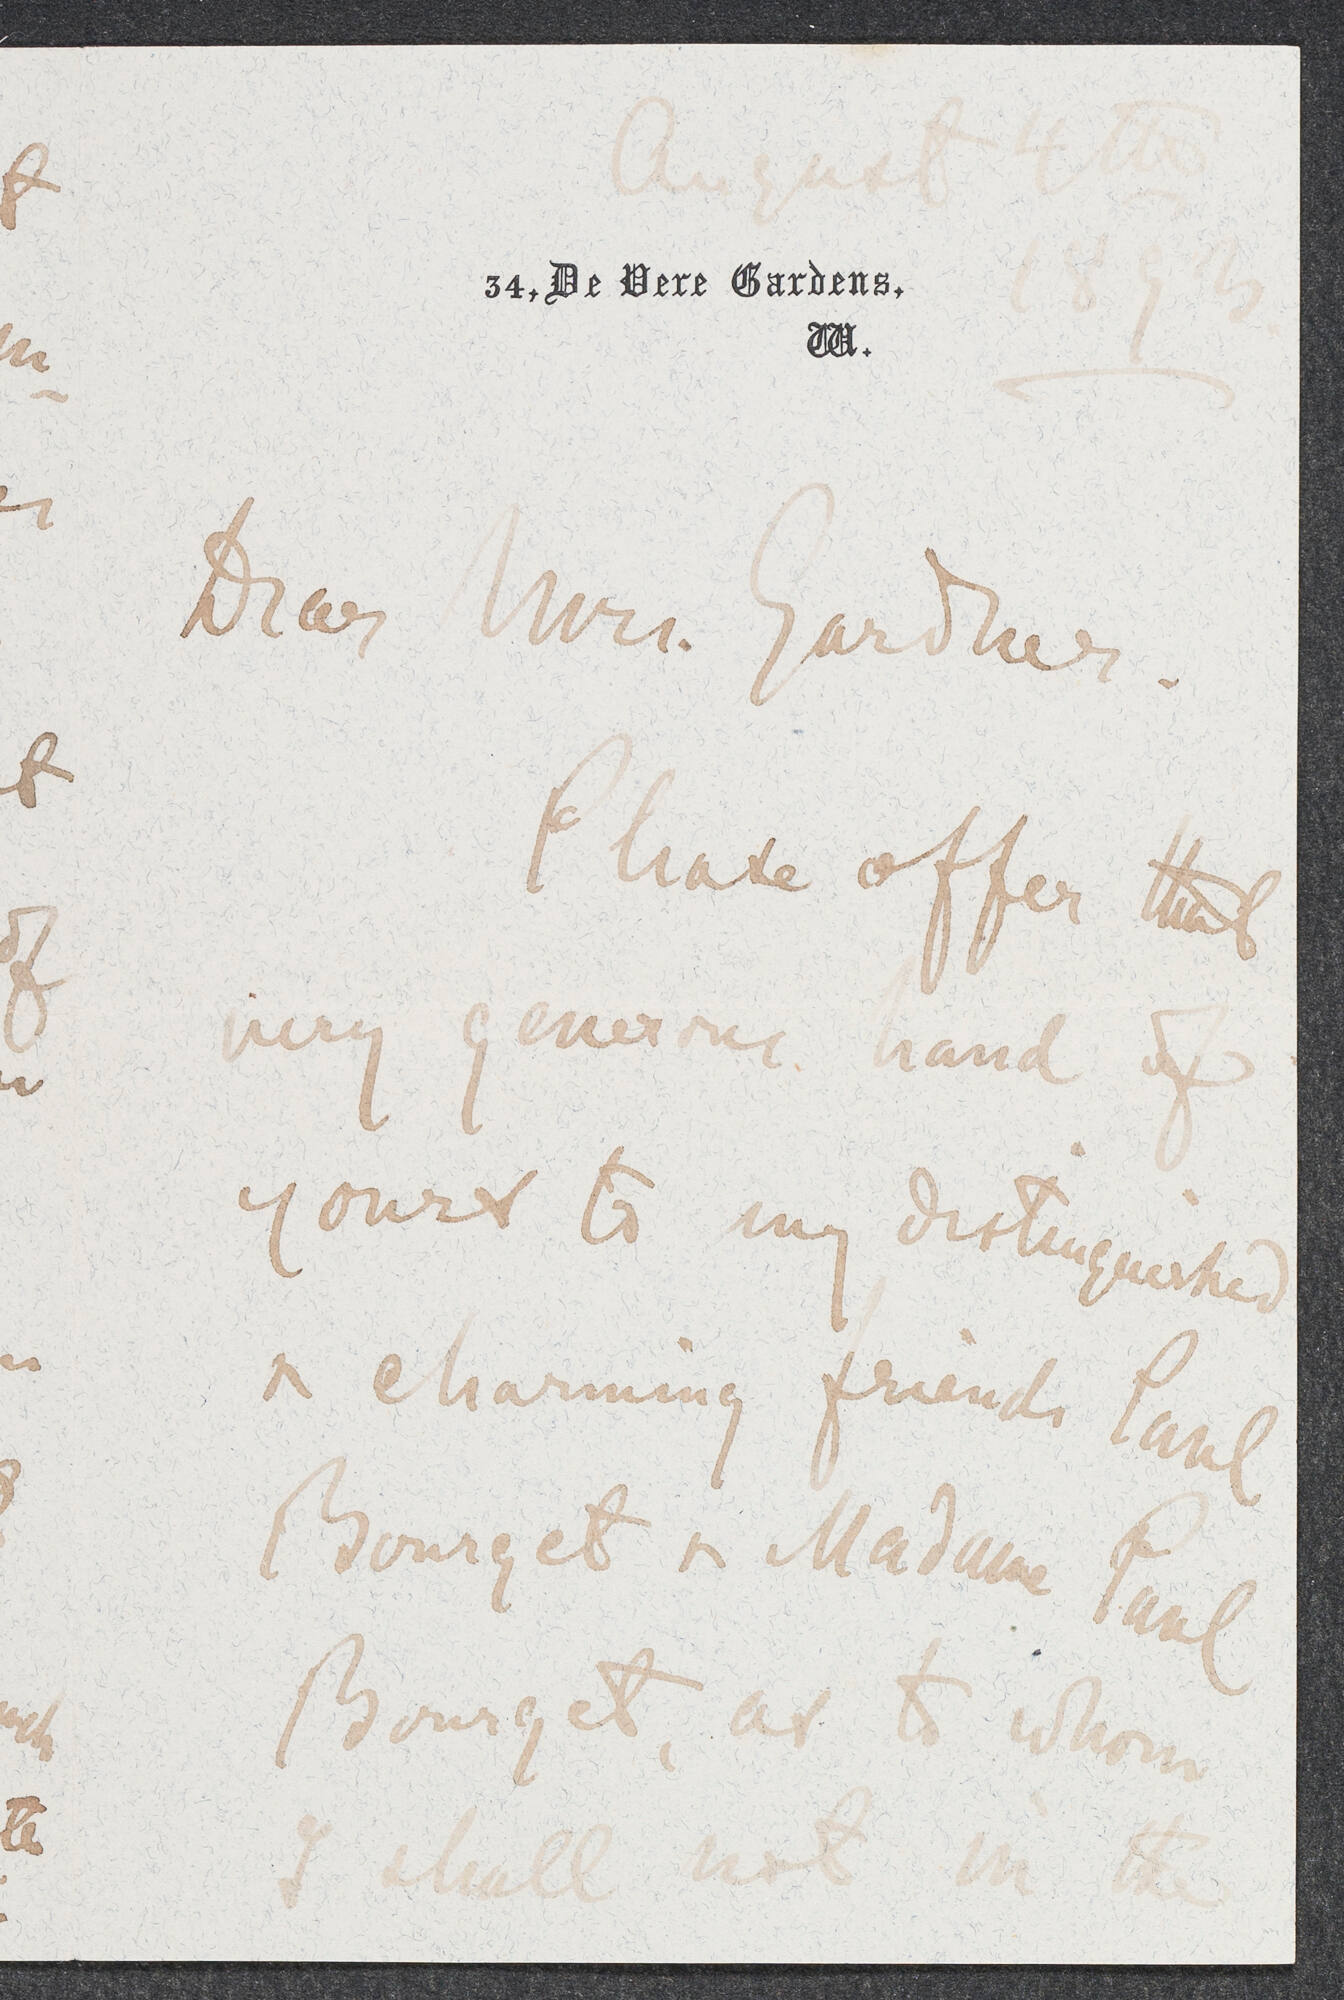 August 4th
1893.
34, De Vere Gardens,
W.
Dear Mrs. Gardner.
Please offer that
very generous hand of
yours to my distinguished
& charming friends Paul
Bourget & Madame Paul
Bourget, as to whom
I shall not in the